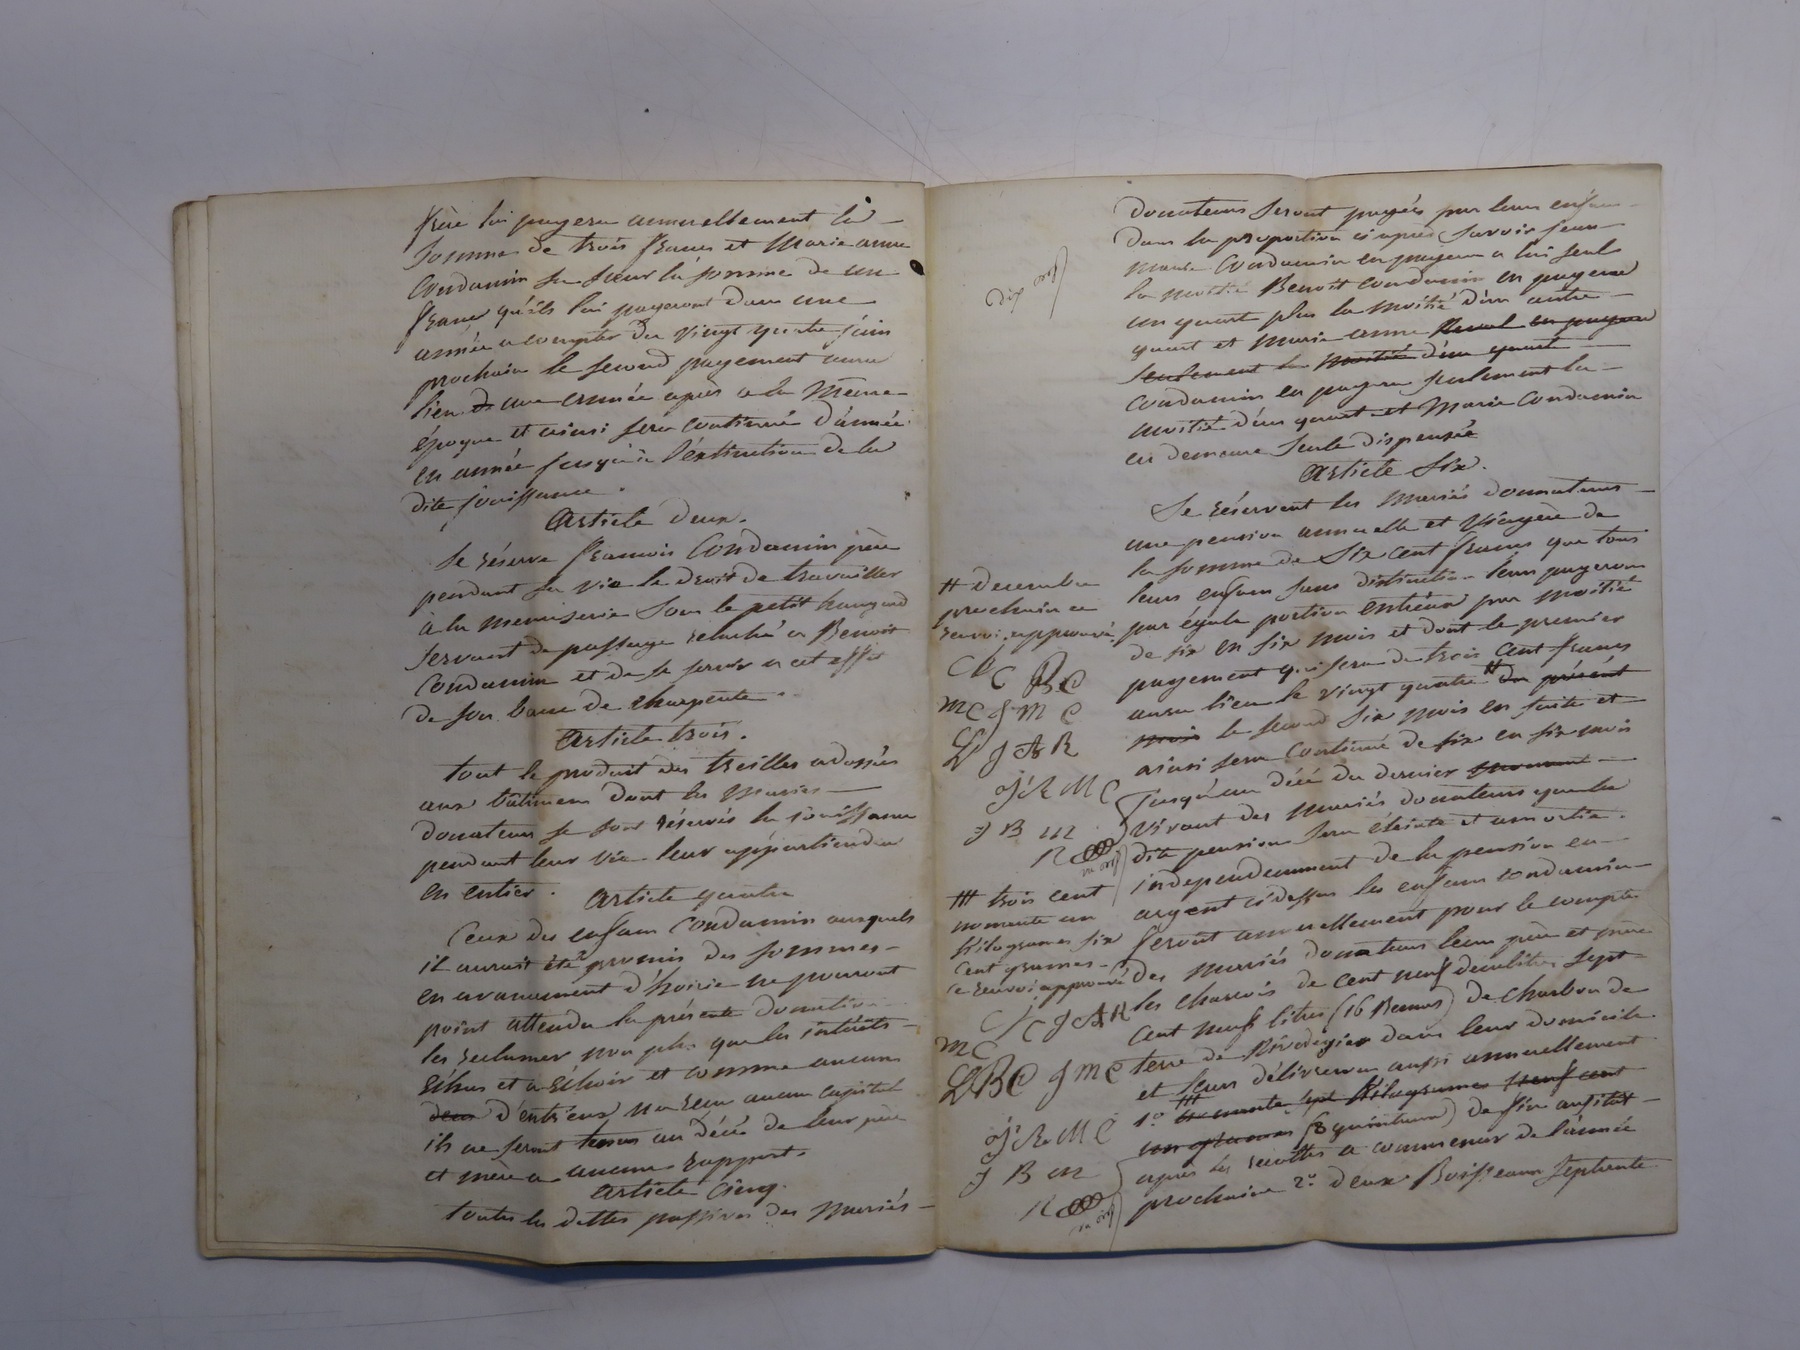 frère lui payera annuellement la
somme de trois francs et Marie anne
Condamin sa sœur la somme de un
franc qu'ils lui payeront dans une
année a compter du vingt quatre juin
prochain le second payement aura
lieu une année après a la même
époque et ainsi sera continué d'année
en année jusqu'à l'extinction de la
dite jouissance.
Article deux.
Se réserve francois Condamin père
pendant sa vie le droit de travailler
à la menuiserie sous le petit hangard
servant de passage relaché a Benoit
Condamin et de se servir a cet effet
de son banc de charpente.
Article trois.
tout le produit des treilles adossées
aux bâtimens dont les Mariés
donateurs se sont réservés la jouissance
pendant leur vie leur appartiendra
en entier.
Article quatre
Ceux des enfans Condamin auxquels
il auroit été promis des sommes
en avancement d'hoirie ne pourront
point attendu la présente donation
les reclamer non plus que les intérêts
échus et a échoir et comme aucun
deux d'entr'eux n'a recu aucun capital
ils ne seront tenus au décé de leur père
et mère a aucuns rapports.
Article Cinq.
toutes les dettes passives des Mariés
donateurs seront payées par leurs enfans
dans la proportion ci après savoir jean
marie Condamin en payera a lui seul
la moitié Benoit Condamin en payera
un quart plus la moitié d'un autre
quart et Marie anne en payera
seulement la moitié d'un quart
Condamin en payera seulement la
moitié d'un quart et Marie Condamin
en demeure seule dispensée
Article Six.
Se réservent les mariés donateurs
une pension annuelle et viagère de
la somme de Six cent francs que tous
leurs enfans sans distinction leur payeront
par égale portion entr'eux par moitié
de six en six mois et dont le premier
payement qui sera de trois cent francs
aura lieu le vingt quatre # du présent
mois le second six mois en suite et
ainsi sera continué de six en six mois
jusqu'au décé du dernier mourant
vivant des mariés donateurs que la
dite pension sera éteinte et amortie.
independemment de la pension en
argent ci dessus les enfans condamin
feront annuellement pour le compte
des mariés donateurs leurs père et mère
les charrois de cent neuf decalitres sept
cent neuf litres (16 Bennes) de charbon de
terre de Rivedegier dans leur domicile
et leur délivreront aussi annuellement
1.o ### Kilogrames neuf cent
(8 quintaux) de foin aussitôt
après les recoltes a commencer de l'année
prochaine 2.o deux Boisseaux septante
dix
# decembre
prochain ce
renvoi approuvé
C BC
MC JMC
JAR
JRMC
JBM
R
### trois cent
nonante un
Kilogrames six
cent grames
ce renvoi approuvé
C JAR
MC
BC JMC
JRMC
JBM
R